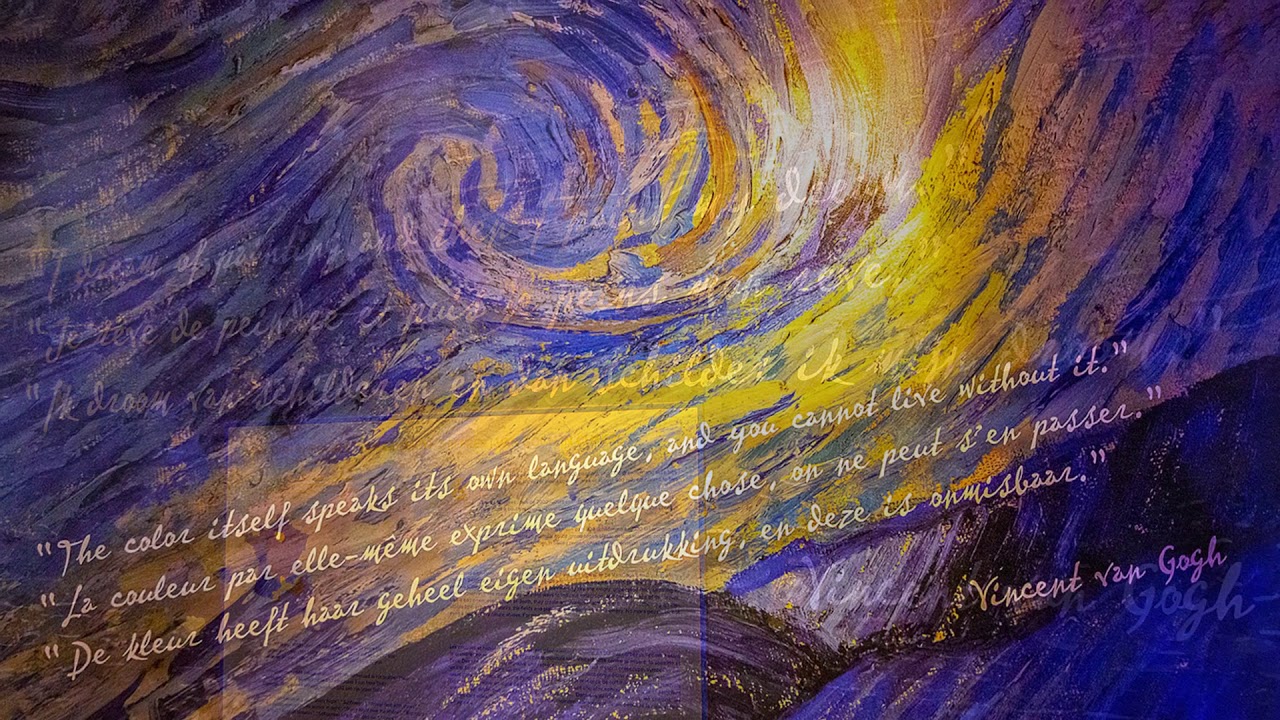 "I dream of painting and
"Je rêve de peindre et puis
"Ik droom van schilderen en dan schilder ik mijn
"The color itself speaks its own language, and you cannot live without it."
"La couleur par elle-même exprime quelque chose, on ne peut s'en passer."
"De kleur heeft haar geheel eigen uitdrukking, en deze is onmisbaar."
Vincent van Gogh
Vincent van Gogh